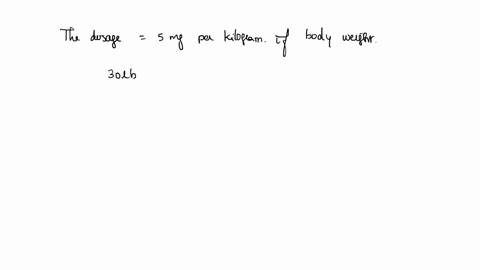 The dosage = 5 mg per kilogram. if body weight.
30lb